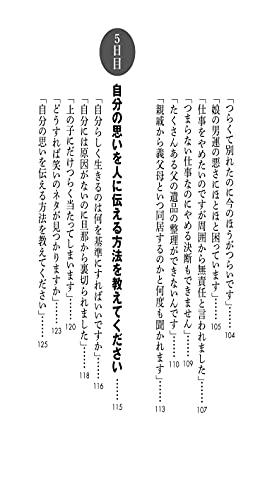 「つらくて別れたのに今のほうがつらいです」……104
「娘の男運の悪さにほとほと困っています」……105
「仕事をやめたいのですが周囲から無責任と言われました」……107
「つまらない仕事なのにやめる決断もできません」……109
「たくさんある父の遺品の整理ができないんです」……110
「親戚から義父母といつ同居するのかと何度も聞かれます」……113
5日目
自分の思いを人に伝える方法を教えてください……115
「自分らしく生きるのは何を基準にすればいいですか」……116
「自分には原因がないのに旦那から裏切られました」……118
「上の子にだけつらく当たってしまいます」……120
「どうすれば笑いのネタが見つかりますか」……123
「自分の思いを伝える方法を教えてください」……125